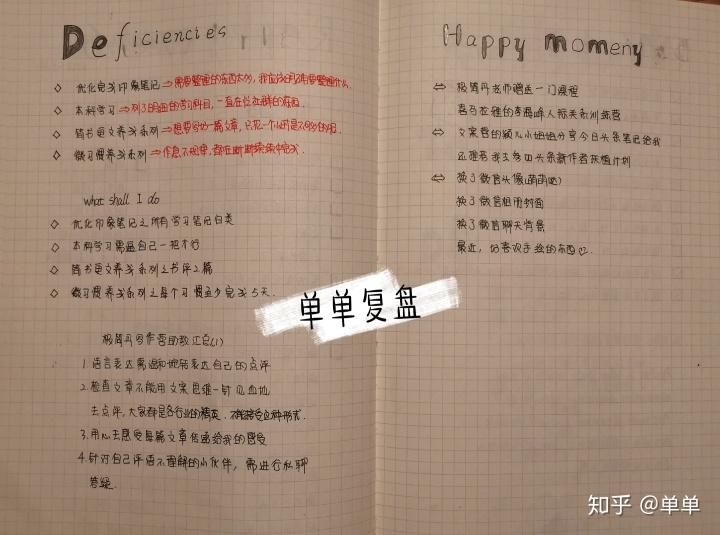 Deficiencies
◇ 优化完我印象笔记⇒需要整理的东西太多,我应该明确要整理什么.
◇ 本科学习⇒列了明细的学习科目,一直在做社群的东西.
◇ 简书更文养我系列⇒想要写好一篇文章,只花一个小时是不够的时间.
◇ 微习惯养我系列⇒作息不规律,都在断断续续中完成.
what shall I do
◇ 优化印象笔记之所有学习笔记归类
◇ 本科学习需逼自己一把才行
◇ 简书更文养我系列之书评2篇
◇ 微习惯养我系列之每个习惯至少完成5天.
极简丹写作营助教汇总(1)
1.语言表达需温和地去表达自己的点评
2.检查文章不能用文案思维一针见血地
去点评,大家都是各行业的精英.不能接受这种形式.
3.用心去感受每篇文章传递给我的感受
4.针对自己评语不理解的小伙伴,需进行私聊
答疑.
Happy moment
⇔ 极简丹老师赠送一门课程
喜马拉雅的李海峰人际关系训练营
⇔ 文案营的颖儿小姐姐分享今日头条笔记给我
还推荐我去参加头条新作者扶植计划
⇔ 换了微信头像(萌萌哒)
换了微信相册封面
换了微信聊天背景
最近,好喜欢手绘的东西♡.
单单复盘
知乎 @单单